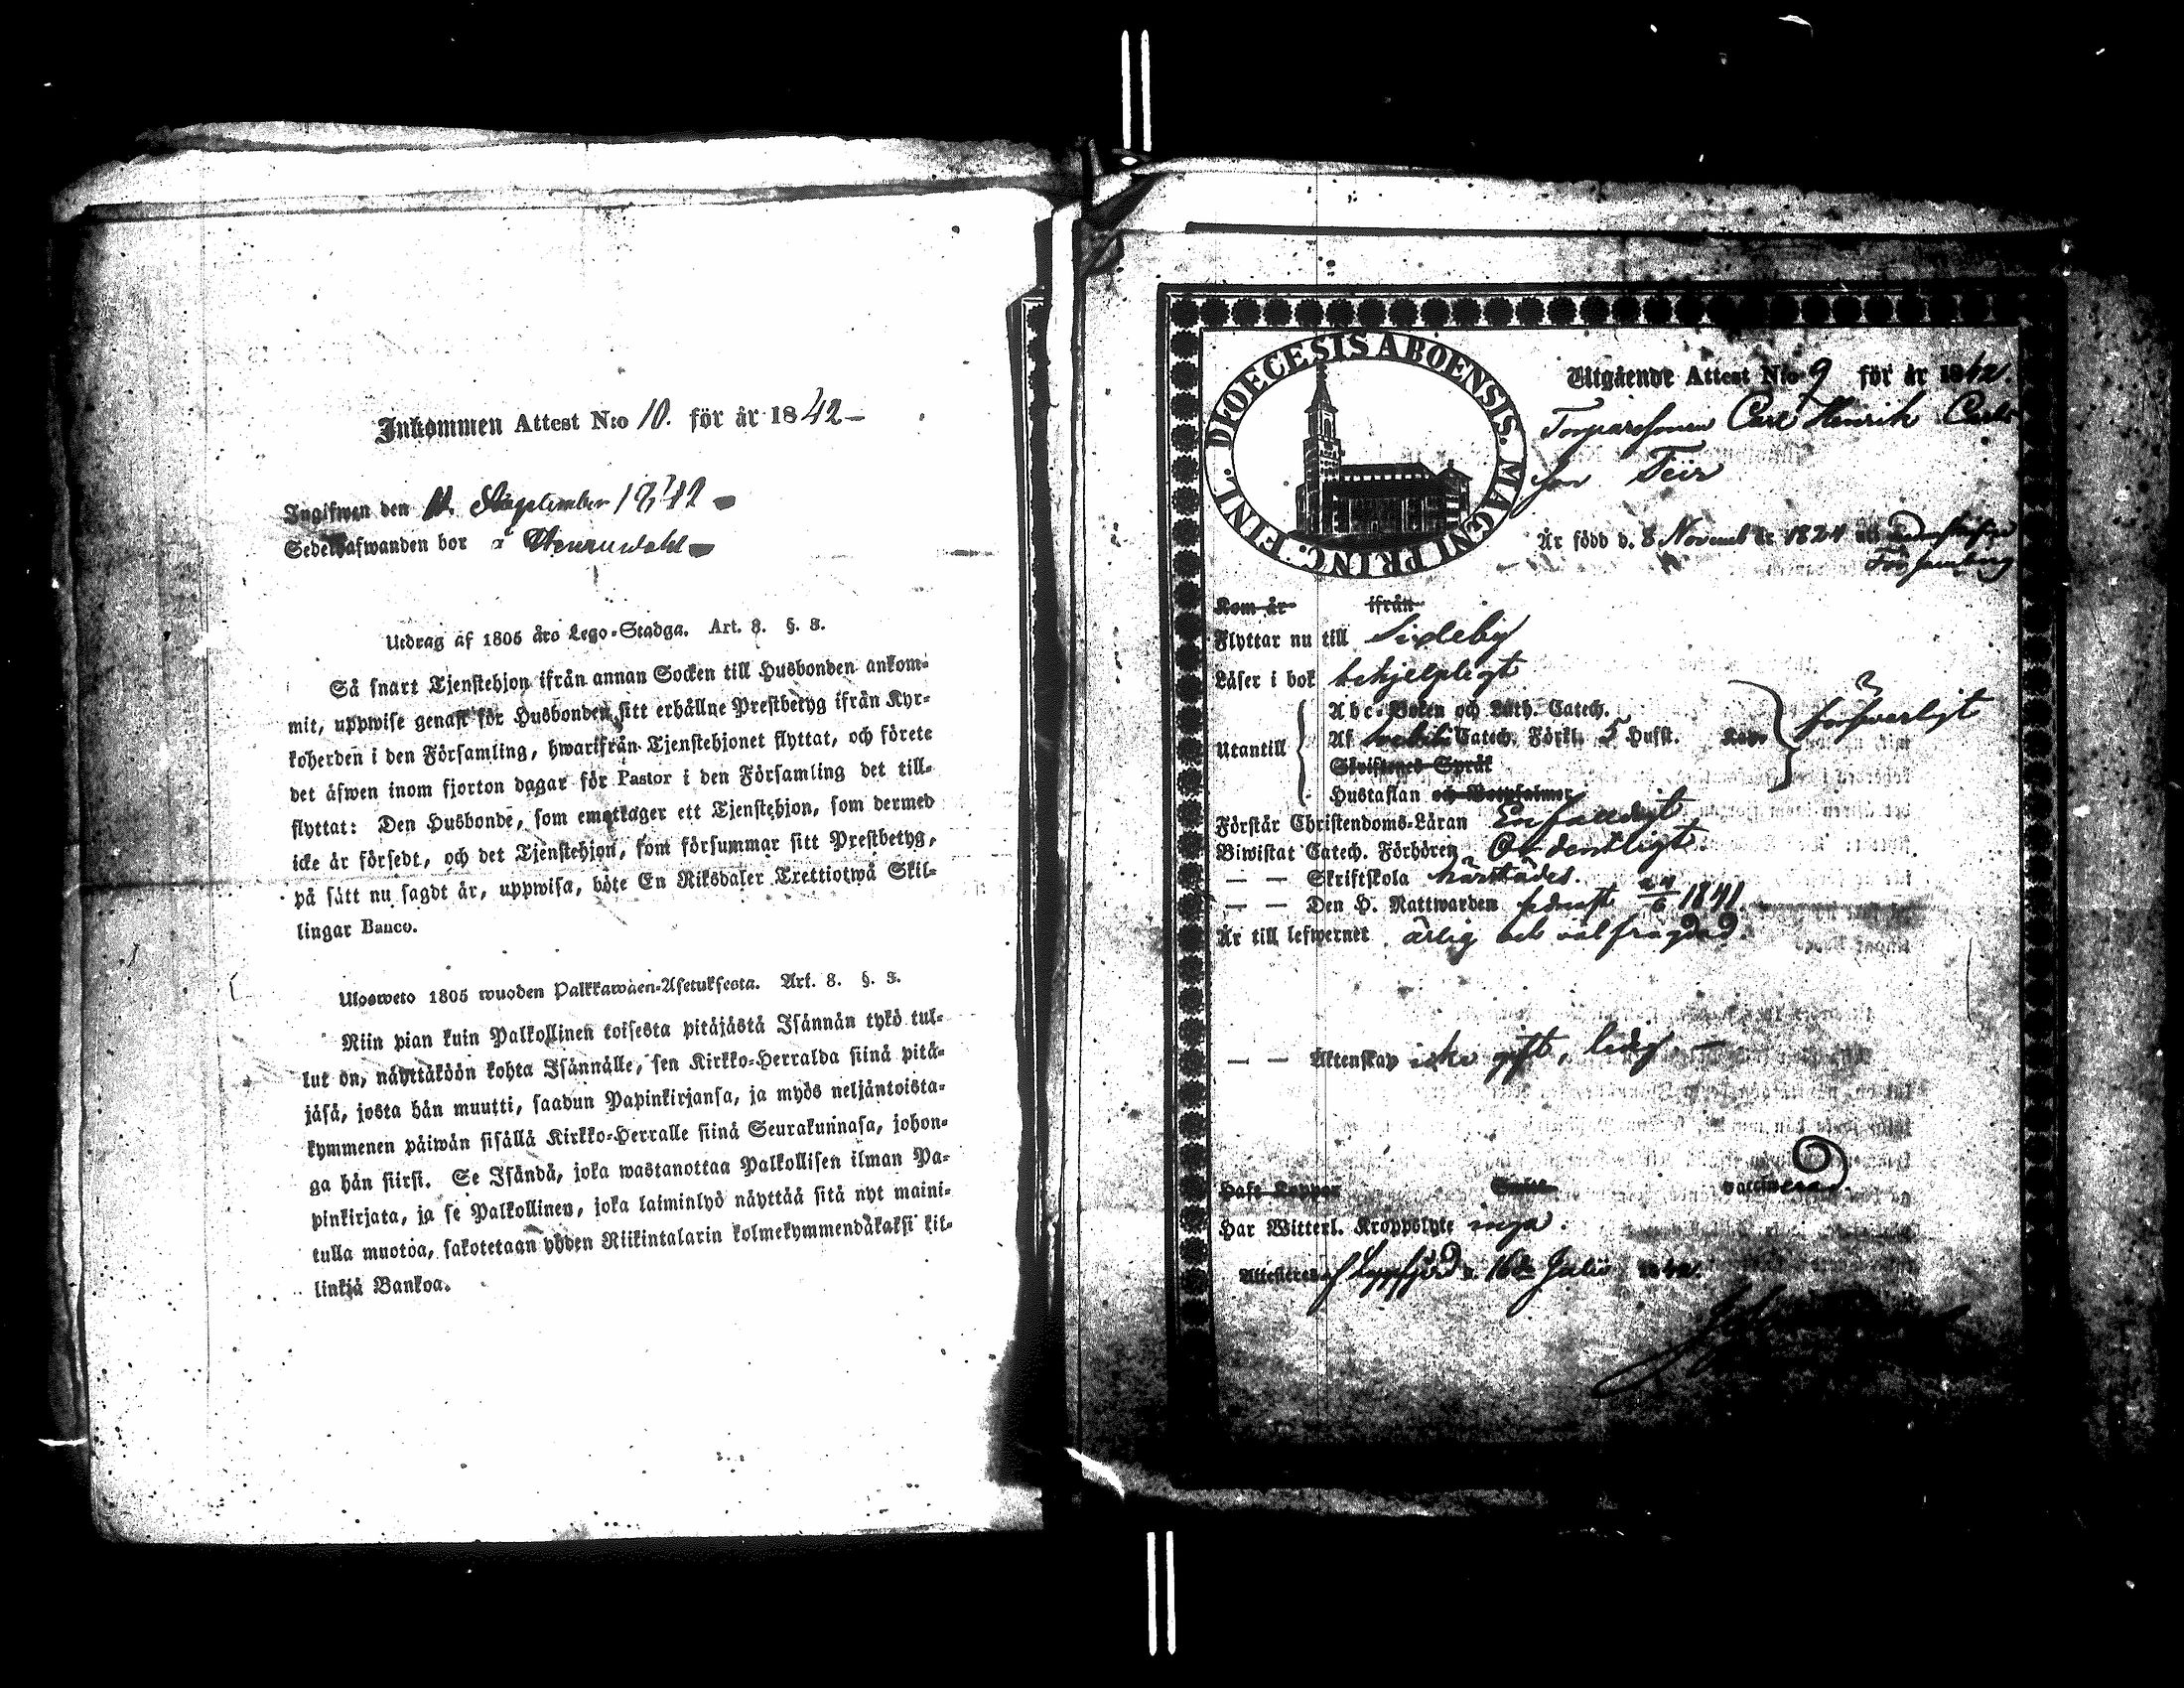 Inkommen Attest N:o 10. för år 1842
Ingifwen den 11. September 1842
Sedelhafwanden bor å
Utdrag af 1805 års Lego-Stadga. Art. 8. §. 8.
Så snart Tjenstehjon ifrån annan Socken till Husbonden ankom-
mit, uppwise genast för Husbonden sitt erhållne Prestbetyg ifrån Kyr-
koherden i den Församling, hwarifrån Tjenstehjonet flyttat, och förete
det äfwen inom fjorton dagar för Pastor i den Församling det till-
flyttat: Den Husbonde, som emottager ett Tjenstehjon, som dermed
icke är försedt, och det Tjenstehjon, som försummar sitt Prestbetyg,
på sätt nu sagdt är, uppwisa, böte En Riksdaler Trettiotwå Skil-
lingar Banco.
Ulosweto 1805 wuoden Palkkawäen-Asetuksesta. Art. 8. §. 8.
Niin pian kuin Palkollinen toisesta pitäjästä Isännän tykö tul-
lut on, näyttäköön kohta Isännälle, sen Kirkko-Herralda siinä pitä-
jäsä, josta hän muutti, saadun Papinkirjansa, ja myös neljäntoista-
kymmenen päiwän sisällä Kirkko-Herralle siinä Seurakunnasa, johon-
ga hän siirsi. Se Isändä, joka wastanottaa Palkollisen ilman Pa-
pinkirjata, ja se Palkollinen, joka laiminlyö näyttää sitä nyt maini-
tulla muotoa, sakotetaan yhden Riikintalarin kolmekymmendäkaksi kil-
linkiä Bankoa.
DIOECESIS ABOENSIS. MAGNI PRINC. FINL.
Utgående Attest N:o 9 för år 1842.
Torparesonen Carl Henrik Carls
son Teir
Är född d. 8 November 1824 uti
Församling
Kom år ifrån
Flyttar nu till Sideby
Läser i bok behjelpligt
Utantill
Abc-Boken och Luth. Catech.
Af Catech. Förkl. 5 Hufst.
försvarligt
Skriftenes Språk
Hustaflan och
Förstår Christendoms-Läran Enfaldigt
Biwistat Catech. Förhören Ordentligt
— — Skriftskola härstädes.
— — Den H. Nattwarden sednast 24/6 1841
Är till lefwernet ärlig och välfrägdad.
— — Äktenskap icke gift, ledig. —
Haft Koppor vaccinerad.
Har Witterl. Kroppslyte inga.
Attesteras af Lappfjärd d. 16de Julii 1842.